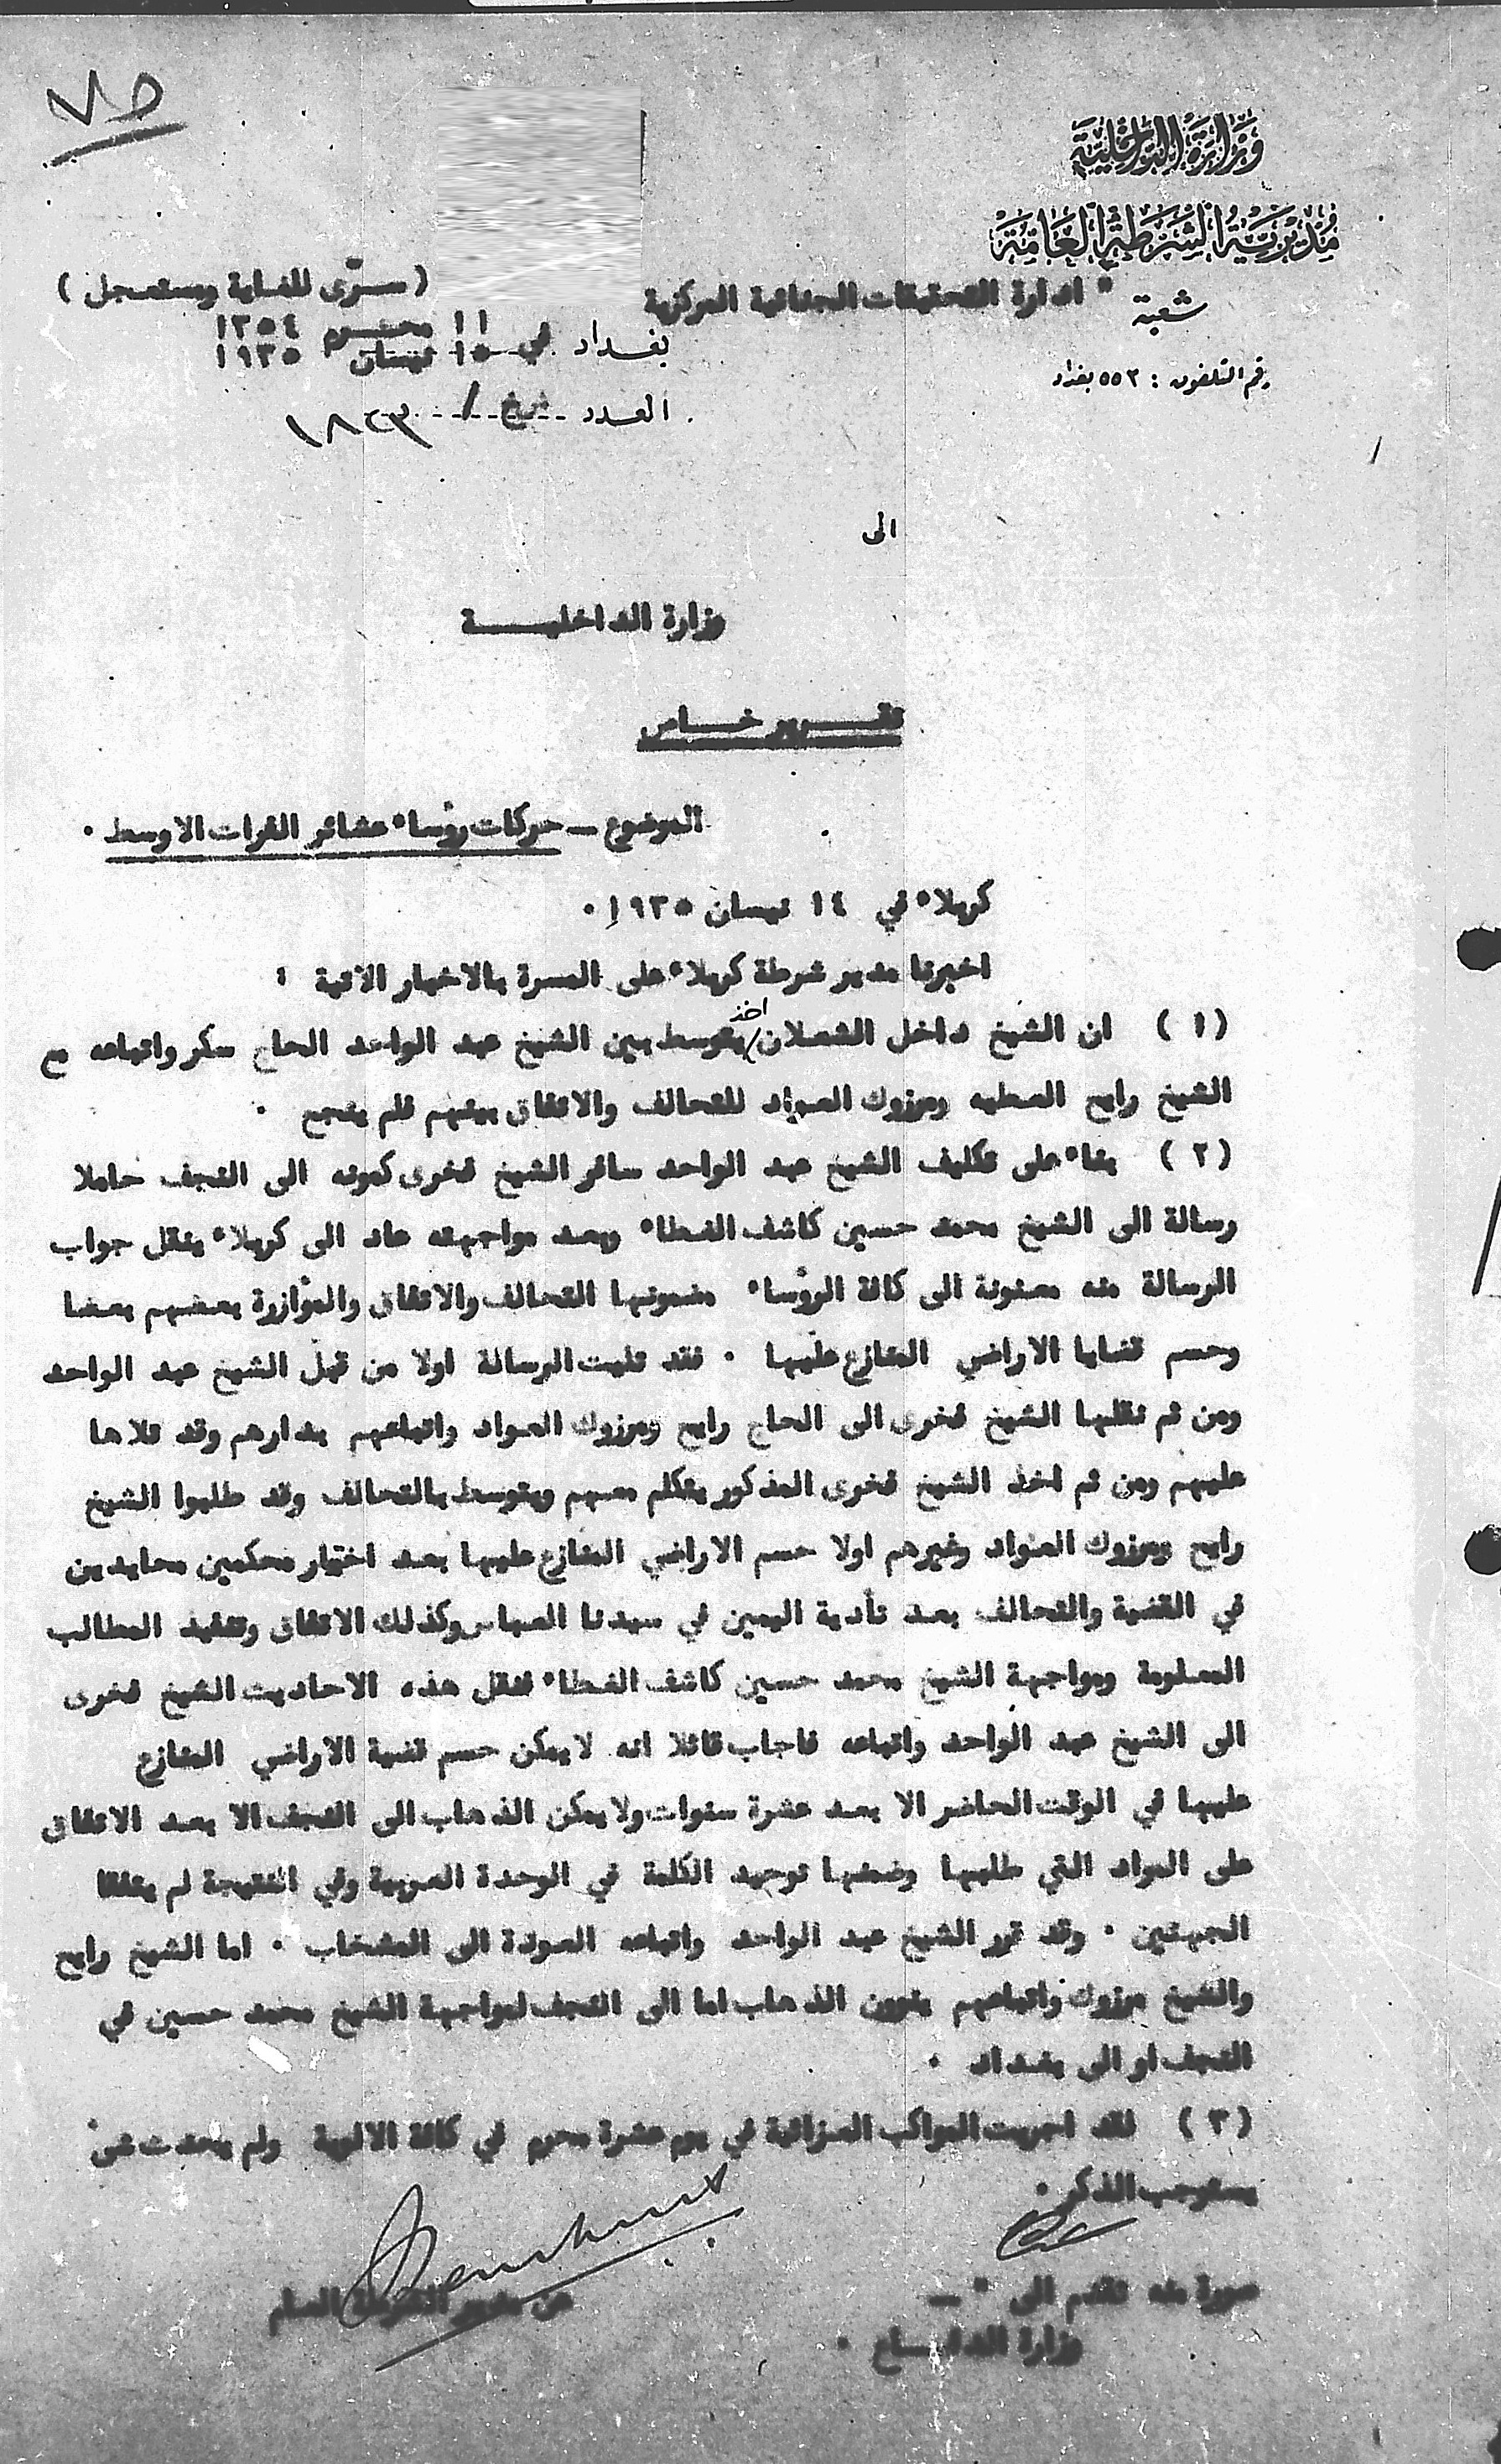 ٧٥
وزارة الداخلية
مديرية الشرطة العامة
شعبة " ادارة التحقيقات الجنائية المركزية
رقم التلفون : ٥٥٢ بغداد
( سرّى للغاية ومستعجل )
بغداد في ١١ محرم ١٣٥٤
١٥ نيسان ١٩٣٥
العدد / ١٨٢٣
الى
وزارة الداخليـــــة
تقـــرير خـــاص
الموضوع ــ حركات رؤساء عشائر الفرات الاوسط ٠
كربلاء في ١٤ نيسان ١٩٣٥ ٠
اخبرنا مدير شرطة كربلاء على المسرة بالاخبار الاتية :
(١) ان الشيخ داخل الشعلان اخذ يتوسط بين الشيخ عبد الواحد الحاج سكر واتباعه مع
الشيخ رايح العطيه ومرزوك العواد للتحالف والاتفاق بينهم فلم ينجح ٠
(٢) بناء على تكليف الشيخ عبد الواحد سافر الشيخ فخرى كمونه الى النجف حاملا
رسالة الى الشيخ محمد حسين كاشف الغطاء وبعد مواجهته عاد الى كربلاء ينقل جواب
الرسالة منه معنونة الى كافة الرؤساء مضمونها التحالف والاتفاق والموْازرة بعضهم بعضا
وحسم قضايا الاراضي المتنازع عليها ٠ فقد تليت الرسالة اولا من قبل الشيخ عبد الواحد
ومن ثم نقلها الشيخ فخرى الى الحاج رايح ومرزوك العواد واتباعهم بدارهم وقد تلاها
عليهم ومن ثم اخذ الشيخ فخرى المذكور يتكلم معهم ويتوسط بالتحالف وقد طلبوا الشيخ
رايح ومرزوك العواد وغيرهم اولا حسم الاراضي المتنازع عليها بعد اختيار محكمين محايدين
في القضية والتحالف بعد تأدية اليمين في سيدنا العباس وكذلك الاتفاق وتنفيذ المطالب
المعلومة ومواجهة الشيخ محمد حسين كاشف الغطاء فنقل هذه الاحاديث الشيخ فخرى
الى الشيخ عبد الواحد واتباعه فاجاب قائلا انه لا يمكن حسم قضية الاراضي المتنازع
عليها في الوقت الحاضر الا بعد عشرة سنوات ولا يمكن الذهاب الى النجف الا بعد الاتفاق
على المواد التي طلبها وضمنها توحيد الكلمة في الوحدة العربية وفي النتيجة لم يتفقا
الجهتين ٠ وقد قرر الشيخ عبد الواحد واتباعه العودة الى المشخاب ٠ اما الشيخ رايح
والشيخ مرزوك واتباعهم ينوون الذهاب اما الى النجف لمواجهة الشيخ محمد حسين في
النجف او الى بغداد ٠
(٣) لقد اجريت المواكب العزائية في يوم عشرة محرم في كافة الالوية ولم يحدث شئ
يستوجب الذكر ٠
عن مدير الشرطة العام
صورة منه تقدم الى " ــ
وزارة الدفـــاع ٠